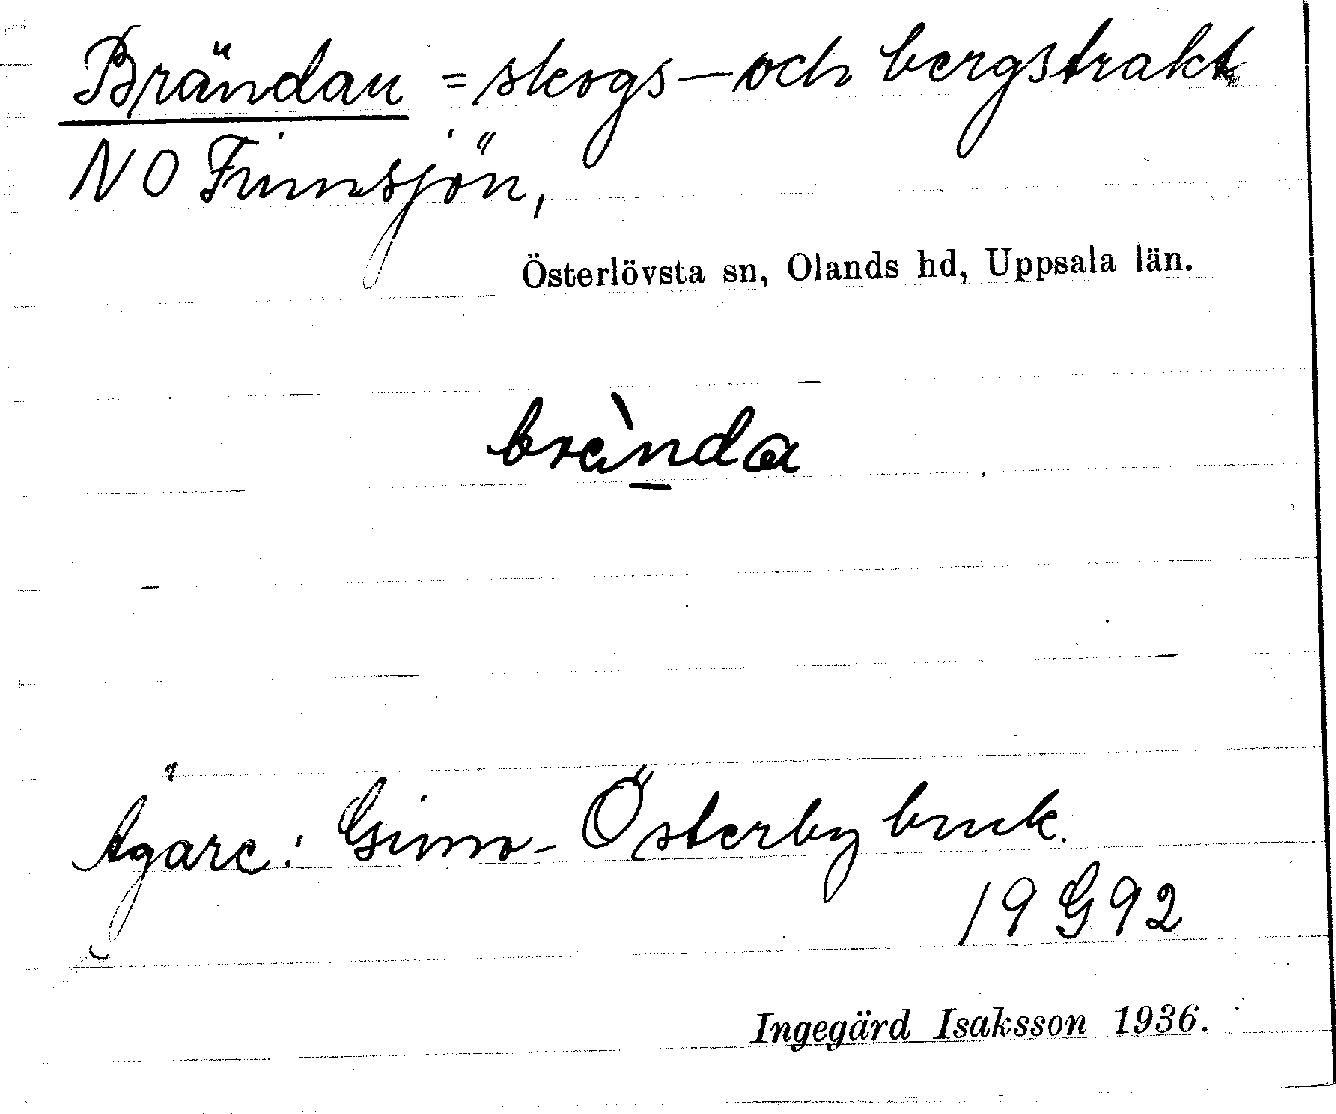 Brändan = skogs- och bergstrakt
NO Finnsjön,
Österlövsta sn, Olands hd, Uppsala län.
brènda
Ägare: Gimo-Österby bruk.
19 G 92
Ingegärd Isaksson 1936.